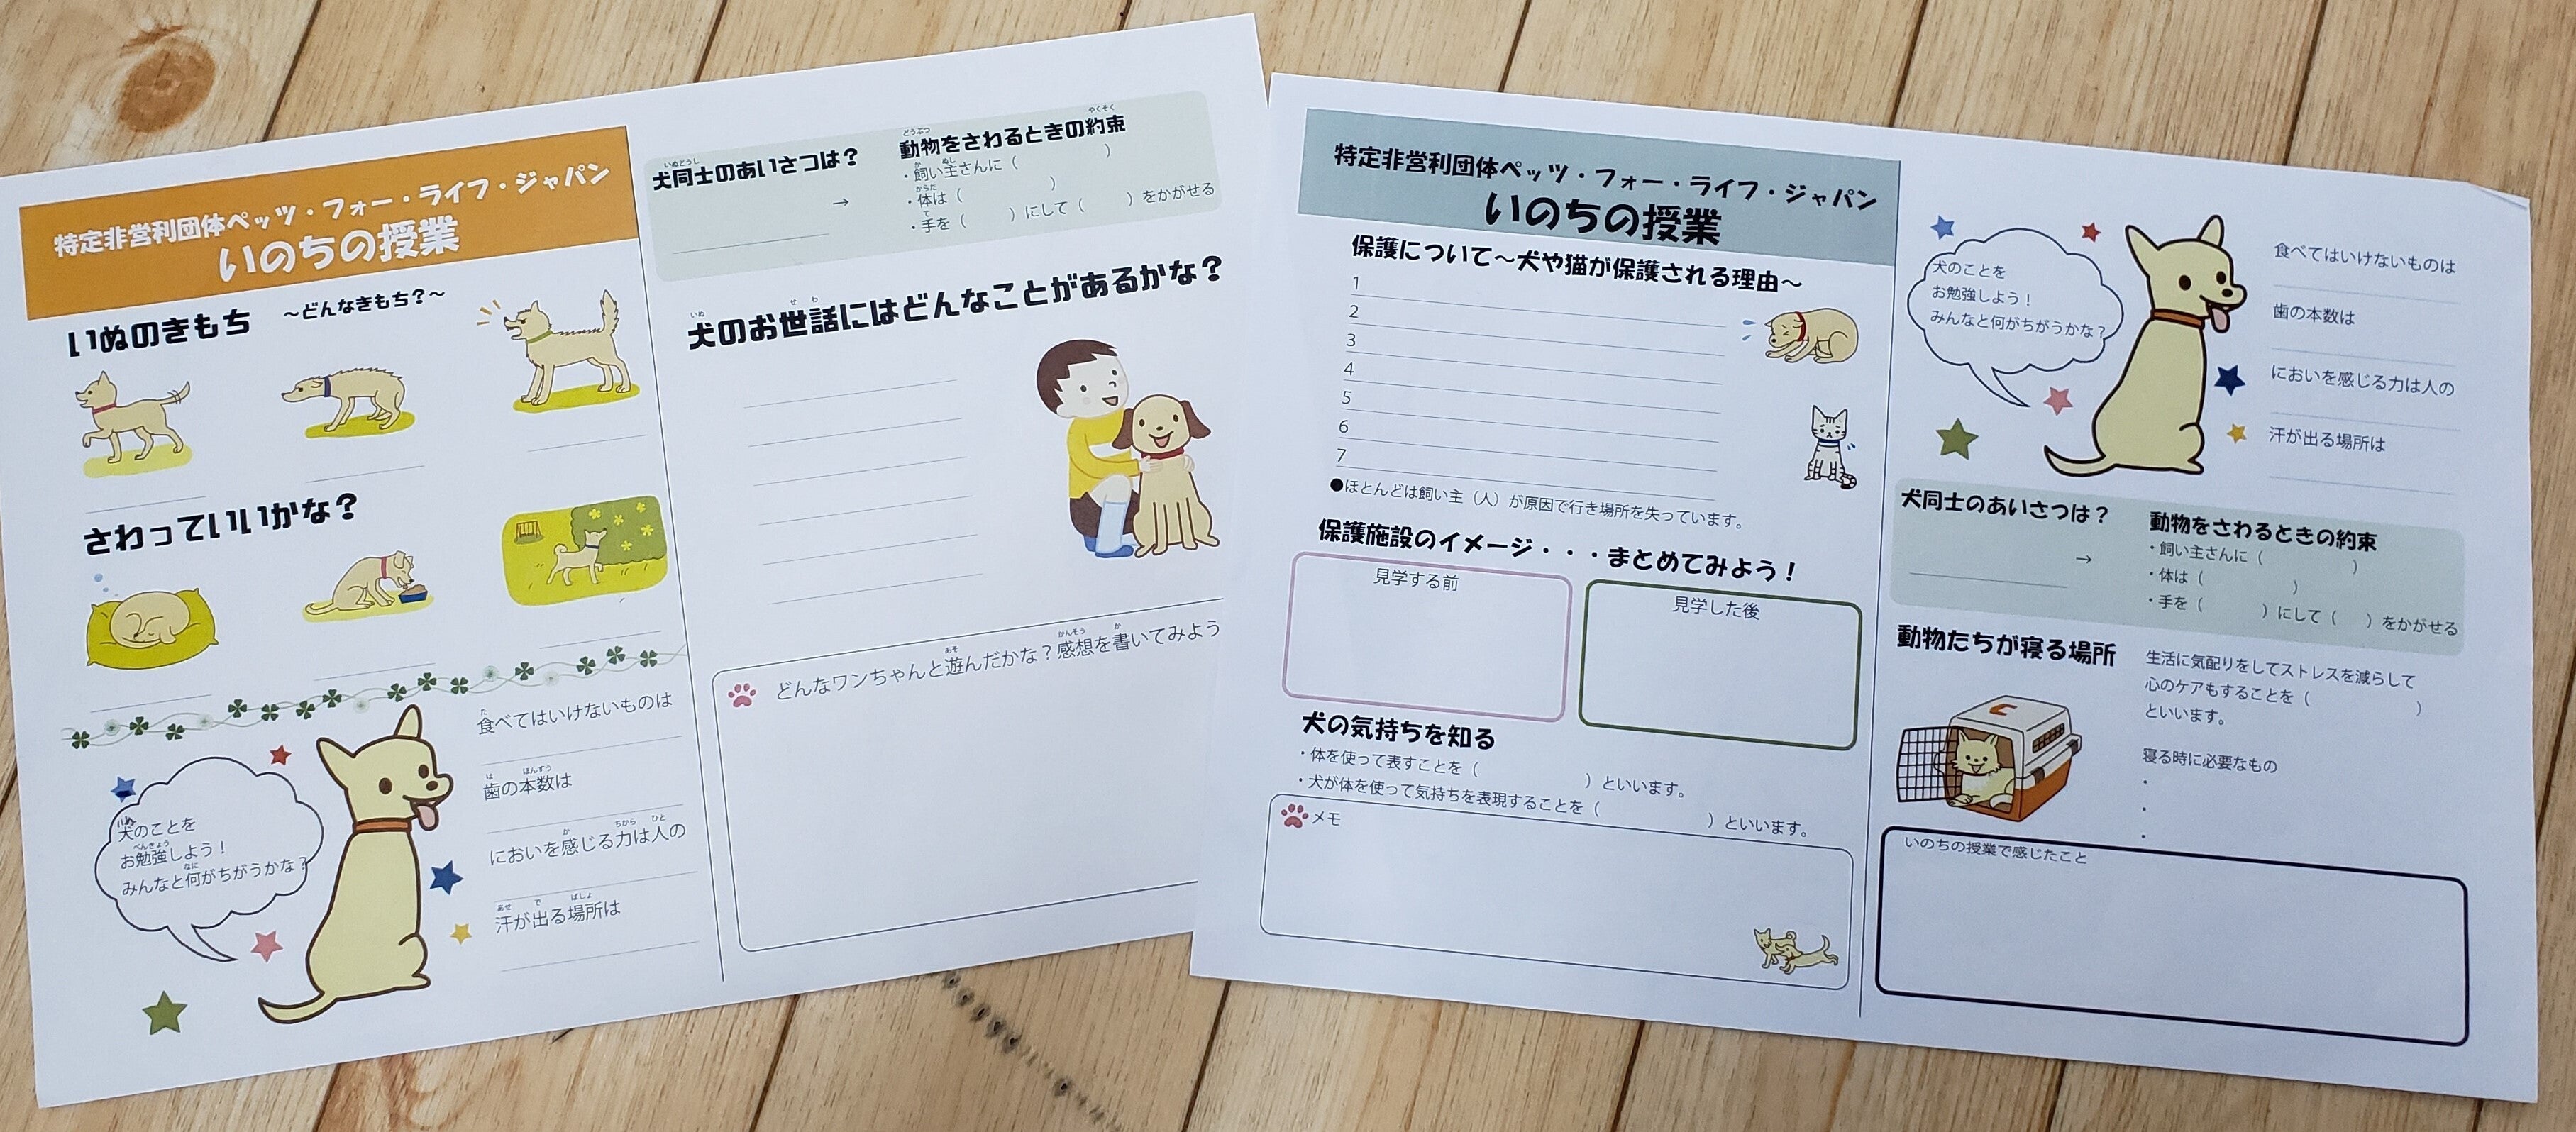 特定非営利団体ペッツ・フォー・ライフ・ジャパン
いのちの授業
いぬのきもち ～どんなきもち？～
さわっていいかな？
いぬ
犬のことを
べんきょう
お勉強しよう！
なに
みんなと何がちがうかな？
た
食べてはいけないものは
は ほんすう
歯の本数は
か ちから ひと
においを感じる力は人の
あせ で ばしょ
汗が出る場所は
いぬどうし
犬同士のあいさつは？
→
どうぶつ やくそく
動物をさわるときの約束
か ぬし
・飼い主さんに（ ）
からだ
・体は（ ）
て
・手を（ ）にして（ ）をかがせる
いぬ せ わ
犬のお世話にはどんなことがあるかな？
あそ かんそう か
どんなワンちゃんと遊んだかな？感想を書いてみよう
特定非営利団体ペッツ・フォー・ライフ・ジャパン
いのちの授業
保護について～犬や猫が保護される理由～
1
2
3
4
5
6
7
●ほとんどは飼い主（人）が原因で行き場所を失っています。
保護施設のイメージ・・・まとめてみよう！
見学する前
見学した後
犬の気持ちを知る
・体を使って表すことを（ ）といいます。
・犬が体を使って気持ちを表現することを（ ）といいます。
メモ
犬のことを
お勉強しよう！
みんなと何がちがうかな？
食べてはいけないものは
歯の本数は
においを感じる力は人の
汗が出る場所は
犬同士のあいさつは？
→
動物をさわるときの約束
・飼い主さんに（ ）
・体は（ ）
・手を（ ）にして（ ）をかがせる
動物たちが寝る場所
生活に気配りをしてストレスを減らして
心のケアもすることを（ ）
といいます。
寝る時に必要なもの
・
・
・
いのちの授業で感じたこと